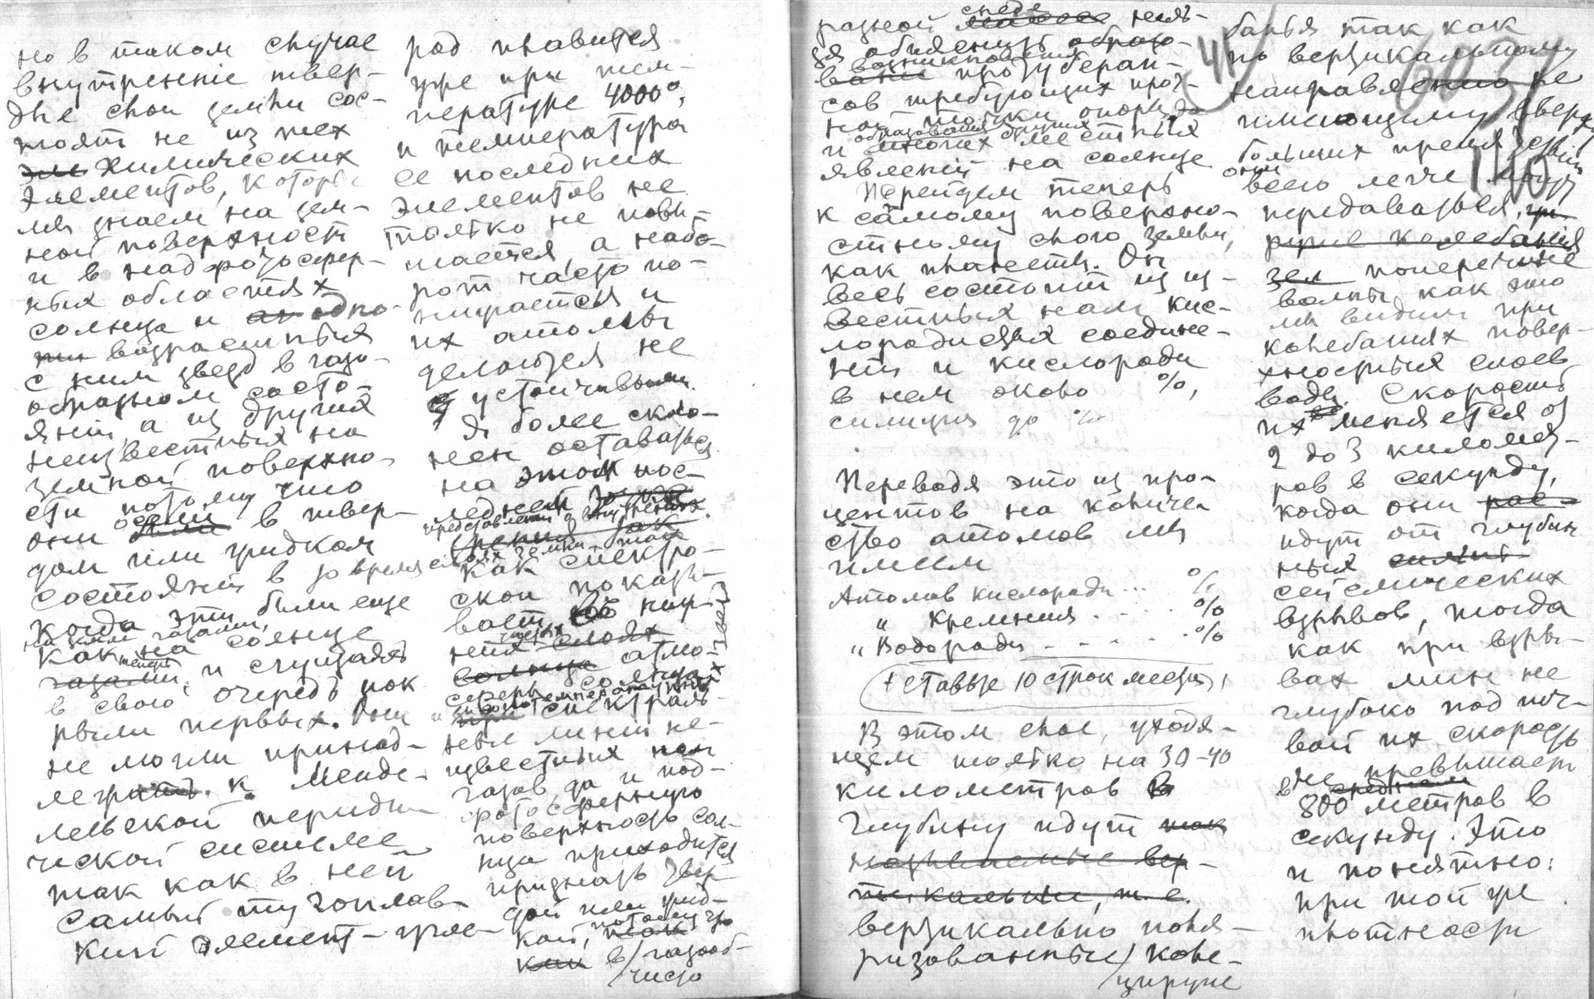 но в таком случае
внутренніе твер-
дые слои земли сос-
тоят не из тех
химических
элементов, которые
мы знаем на зем-
ной поверхности
и в надфотосфер-
ных областях
солнца и одно-
возрастных
с ним звезд в газо-
образном состо-
яніи, а из других
неизвестных на
земной поверхно-
сти потому что
они осели в твер-
дом или жидком
состояніи в то время
когда эти были еще
газами,
как на солнце
и сгущались
в свою очередь пок
рыли первых. Они
не могли принад-
лежать к Менде-
леевской періоди-
ческой системе
так как в ней
самый тугоплав-
кий элемент - угле-
род плавится
уже при тем-
пературе 4000°,
и температура
ее последних
элементов не
только не повы-
шается, а наобо-
рот часто по-
нижается и
их атомы
делаются не
устойчивыми.
Я более скло-
нен оставаться
на этом пос-
леднем
представлении о внутренних
слоях земли
как спектро-
скоп показы-
вает
слоях
солнца атмо-
сферы солнца
спектраль
ных линий не-
известных нам
газов, да и под-
фотосферную
поверхность сол-
нца приходится
признать твер-
дой или жид-
кой, потому что
как в газооб-
чисто
разной среде нель-
зя объяснить
возникновения протуберан-
сов требующих проч-
ной точки опоры
и образования других местных
явленій на солнце
Перейдем теперь
к самому поверхно-
стному слою земли,
как планеты. Он
весь состоит из из-
вестных нам кис-
лородистых соедине-
ній и кислорода
в нем около %,
силиция до %
Переводя это из про-
центов на количес
ство атомов мы
имеем
Атомов кислорода ... %
" Кремния ... %
" Водорода - - - . %
(Оставьте 10 строк места)
В этом слое, уходя-
щем только на 30-40
километров в
глубину идут так
называемые вер-
тикальные, т.е.
вертикально поля-
ризованные коле-
41
банья так как
по вертикальному
направлению не
имеющему вверх
больших препятствий
они
всего легче могут
передаваться,
поперечные
волны как это
мы видим при
колебаниях повер-
хностных слоев
воды. Скорость
их меняется от
2 до 3 километ-
ров в секунду,
когда они
идут от глубин
ных
сейсмических
взрывов, тогда
как при взры-
вах мин не
глубоко под поч-
вой их скорость
не превышает
в среднем
800 метров в
секунду. Это
и понятно:
при той же
плотности